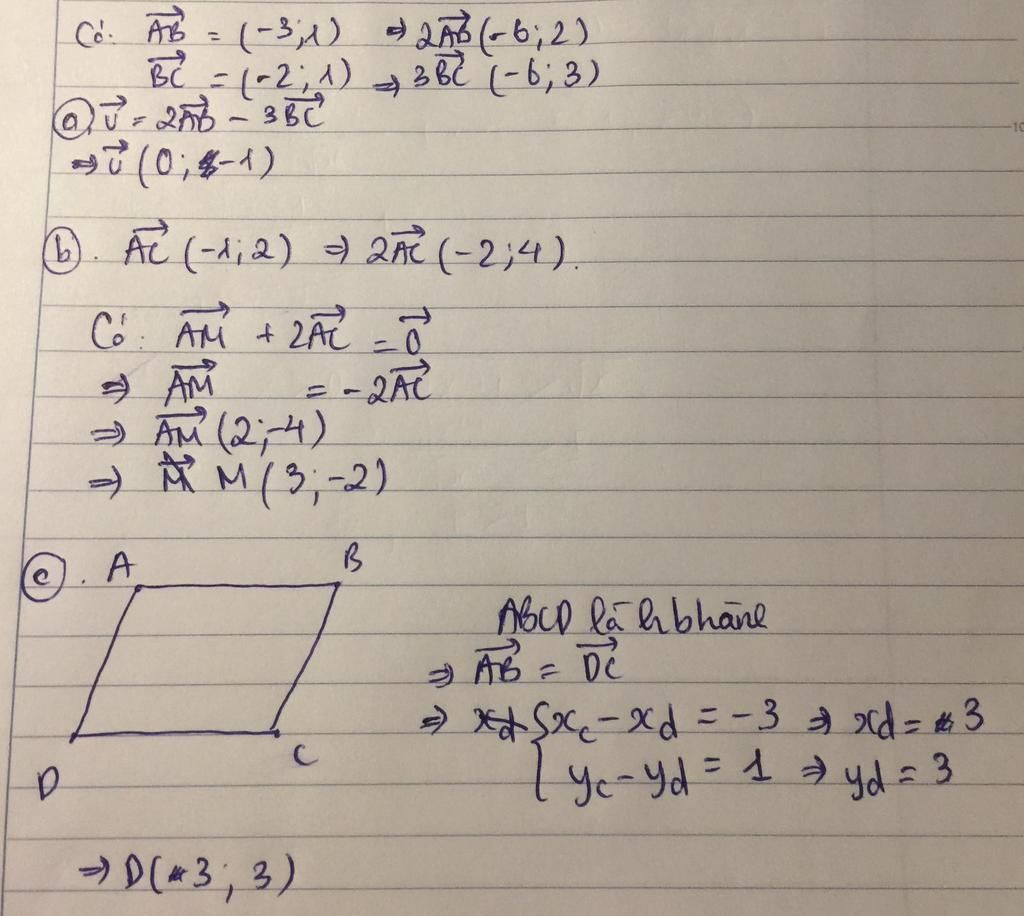 Có: AB = (-3;1) ⇒ 2AB (-6; 2)
BC = (-2; 1) ⇒ 3BC (-6; 3)
a, u = 2AB - 3BC
⇒ u (0; -1)
b. AC (-1; 2) ⇒ 2AC (-2; 4).
Có: AM + 2AC = 0
⇒ AM = -2AC
⇒ AM (2; -4)
⇒ M (3; -2)
c. A B
ABCD là hbhành
⇒ AB = DC
⇒ { xc - xd = -3 ⇒ xd = 3
yc - yd = 1 ⇒ yd = 3
C
D
⇒ D(3; 3)
10